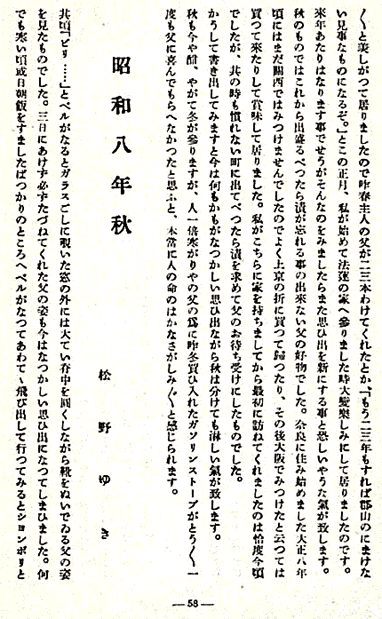 〱と羨しがつて居りましたので昨春主人の父が二三本わけてくれたとか、「もう二三年もすれば郡山のにまけな
い見事なものになるぞ。」とこの正月、私が始めて法蓮の家へ參りました時大變樂しみにして居りましたのです。
來年あたりはなります事でせうがそんなのをみましたらまた思ひ出を新にする事と悲しいやうた氣が致します。
秋のものではこれから出盛るべつたら漬が忘れる事の出來ない父の好物でした。奈良に住み始めました大正八年
頃にはまだ關西ではみつけませんでしたのでよく上京の折に買つて歸つたり、その後大阪でみつけたと云つては
買つて來たりして賞味して居りました。私がこちらに家を持ちましてから最初に訪ねてくれましたのは恰度今頃
でしたが、其の時も慣れない町に出てべつたら漬を求めて父のお待ち受けにしたものでした。
かうして書き出してみますと今は何もかもがなつかしい思ひ出ながら秋は分けても淋しい氣が致します。
秋も今や酣、やがて冬が參りますが、人一倍寒がりやの父の爲に昨冬買ひ入れたガソリンストーブがとう〱一
度も父に喜んでもらへなかつたと思ふと、本當に人の命のはかなさがしみ〲と感じられます。
昭和八年秋
松野ゆき
其頃「ビリ……」とベルがなるとガラスごしに覗いた窓の外には大てい脊中を圓くしながら靴をぬいでゐる父の姿
を見たものでした。三日にあけず必ずたづねてくれた父の姿も今はなつかしい思ひ出になつてしまひました。何
でも寒い頃或日朝飯をすましたばつかりのところへベルがなつてあわて〻飛び出して行つてみるとシヨンボリと
—58—